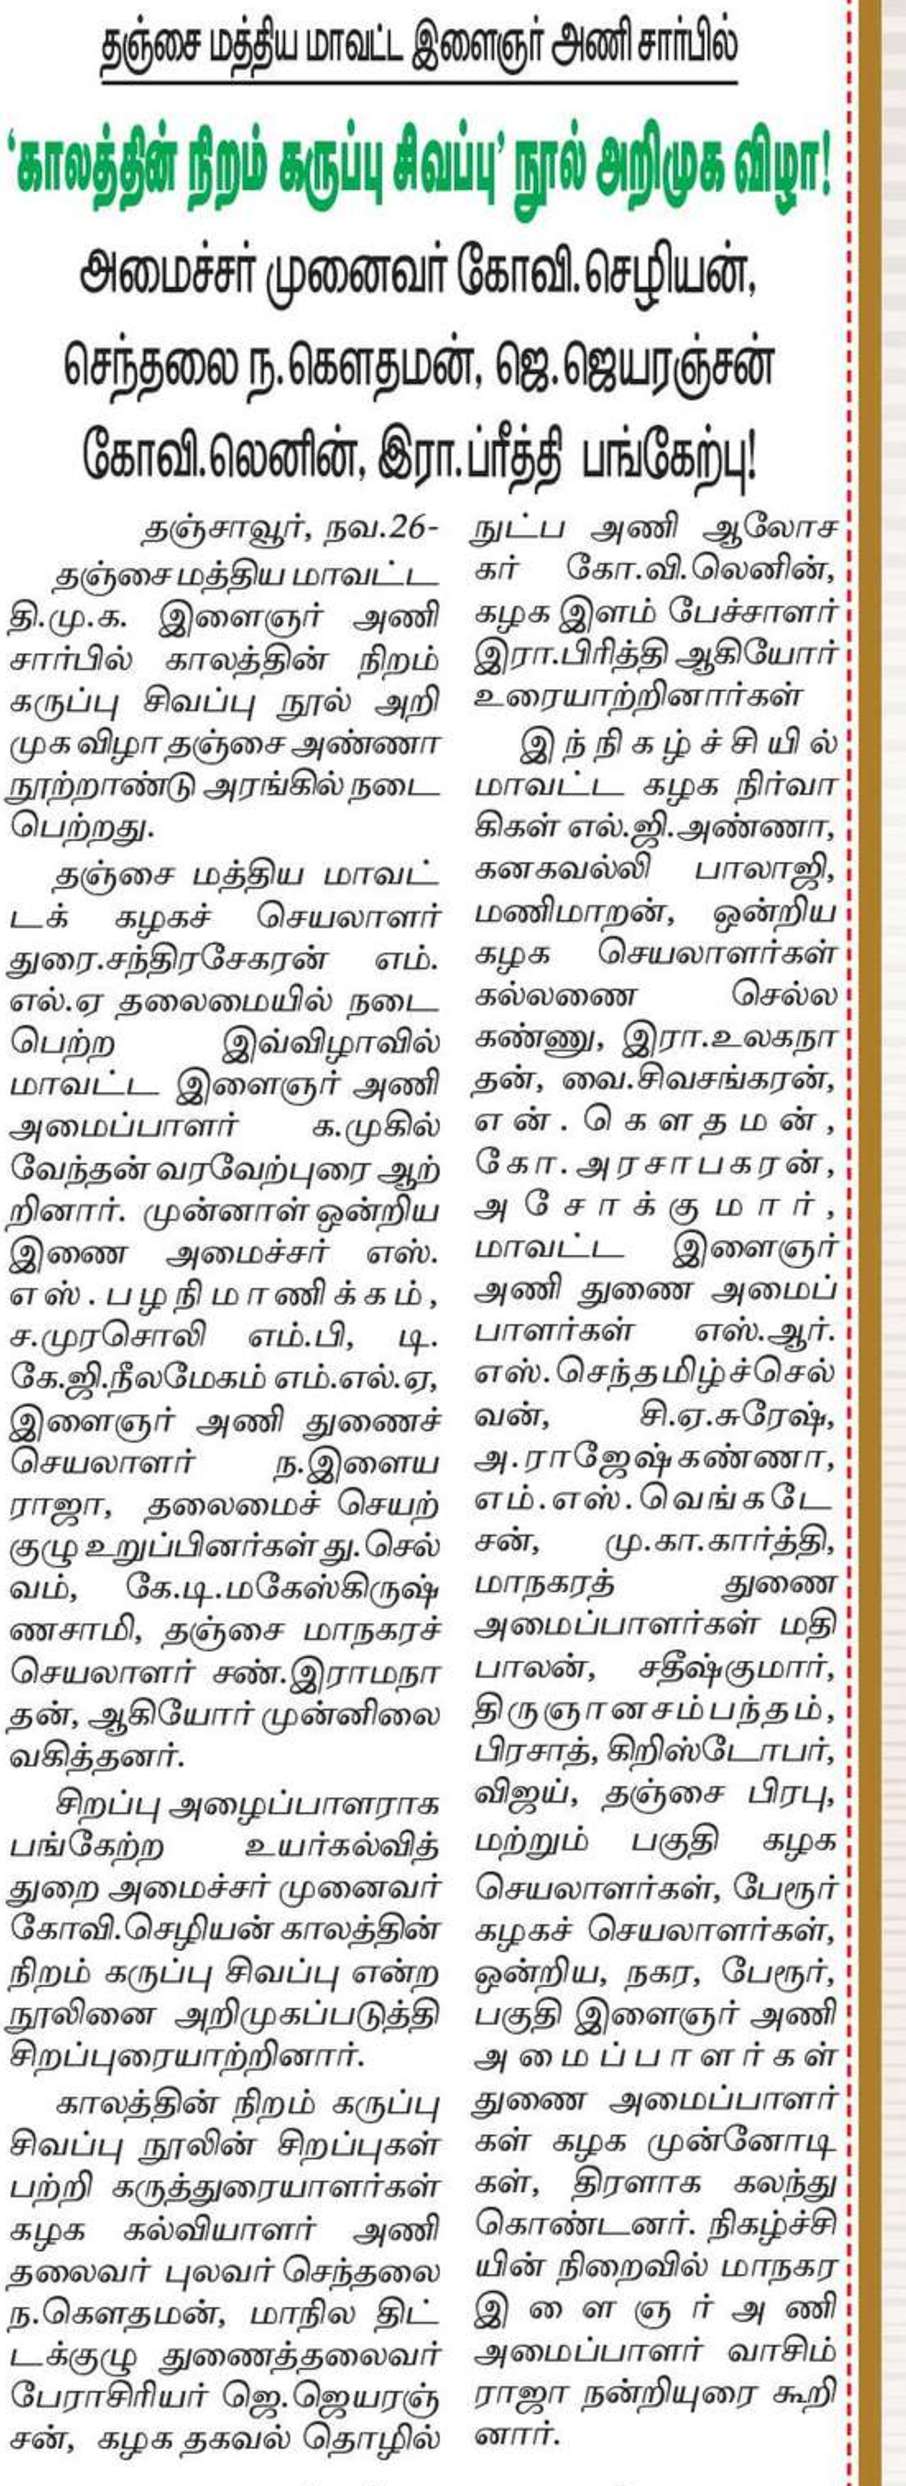 தஞ்சை மத்திய மாவட்ட இளைஞர் அணி சார்பில்
‘காலத்தின் நிறம் கருப்பு சிவப்பு’ நூல் அறிமுக விழா!
அமைச்சர் முனைவர் கோவி.செழியன்,
செந்தலை ந.கௌதமன், ஜெ.ஜெயரஞ்சன்
கோவி.லெனின், இரா.ப்ரீத்தி பங்கேற்பு!
தஞ்சாவூர், நவ.26-
தஞ்சை மத்திய மாவட்ட
தி.மு.க. இளைஞர் அணி
சார்பில் காலத்தின் நிறம்
கருப்பு சிவப்பு நூல் அறி
முக விழா தஞ்சை அண்ணா
நூற்றாண்டு அரங்கில் நடை
பெற்றது.
தஞ்சை மத்திய மாவட்
டக் கழகச் செயலாளர்
துரை.சந்திரசேகரன் எம்.
எல்.ஏ தலைமையில் நடை
பெற்ற இவ்விழாவில்
மாவட்ட இளைஞர் அணி
அமைப்பாளர் க.முகில்
வேந்தன் வரவேற்புரை ஆற்
றினார். முன்னாள் ஒன்றிய
இணை அமைச்சர் எஸ்.
எஸ்.பழநிமாணிக்கம்,
ச.முரசொலி எம்.பி, டி.
கே.ஜி.நீலமேகம் எம்.எல்.ஏ,
இளைஞர் அணி துணைச்
செயலாளர் ந.இளைய
ராஜா, தலைமைச் செயற்
குழு உறுப்பினர்கள் து.செல்
வம், கே.டி.மகேஸ்கிருஷ்
ணசாமி, தஞ்சை மாநகரச்
செயலாளர் சண்.இராமநா
தன், ஆகியோர் முன்னிலை
வகித்தனர்.
சிறப்பு அழைப்பாளராக
பங்கேற்ற உயர்கல்வித்
துறை அமைச்சர் முனைவர்
கோவி.செழியன் காலத்தின்
நிறம் கருப்பு சிவப்பு என்ற
நூலினை அறிமுகப்படுத்தி
சிறப்புரையாற்றினார்.
காலத்தின் நிறம் கருப்பு
சிவப்பு நூலின் சிறப்புகள்
பற்றி கருத்துரையாளர்கள்
கழக கல்வியாளர் அணி
தலைவர் புலவர் செந்தலை
ந.கௌதமன், மாநில திட்
டக்குழு துணைத்தலைவர்
பேராசிரியர் ஜெ.ஜெயரஞ்
சன், கழக தகவல் தொழில்
நுட்ப அணி ஆலோச
கர் கோ.வி.லெனின்,
கழக இளம் பேச்சாளர்
இரா.பிரித்தி ஆகியோர்
உரையாற்றினார்கள்
இந்நிகழ்ச்சியில்
மாவட்ட கழக நிர்வா
கிகள் எல்.ஜி.அண்ணா,
கனகவல்லி பாலாஜி,
மணிமாறன், ஒன்றிய
கழக செயலாளர்கள்
கல்லணை செல்ல
கண்ணு, இரா.உலகநா
தன், வை.சிவசங்கரன்,
என்.கௌதமன்,
கோ.அரசாபகரன்,
அசோக்குமார்,
மாவட்ட இளைஞர்
அணி துணை அமைப்
பாளர்கள் எஸ்.ஆர்.
எஸ்.செந்தமிழ்ச்செல்
வன், சி.ஏ.சுரேஷ்,
அ.ராஜேஷ்கண்ணா,
எம்.எஸ்.வெங்கடே
சன், மு.கா.கார்த்தி,
மாநகரத் துணை
அமைப்பாளர்கள் மதி
பாலன், சதீஷ்குமார்,
திருஞானசம்பந்தம்,
பிரசாத், கிறிஸ்டோபர்,
விஜய், தஞ்சை பிரபு,
மற்றும் பகுதி கழக
செயலாளர்கள், பேரூர்
கழகச் செயலாளர்கள்,
ஒன்றிய, நகர, பேரூர்,
பகுதி இளைஞர் அணி
அமைப்பாளர்கள்
துணை அமைப்பாளர்
கள் கழக முன்னோடி
கள், திரளாக கலந்து
கொண்டனர். நிகழ்ச்சி
யின் நிறைவில் மாநகர
இளைஞர் அணி
அமைப்பாளர் வாசிம்
ராஜா நன்றியுரை கூறி
னார்.